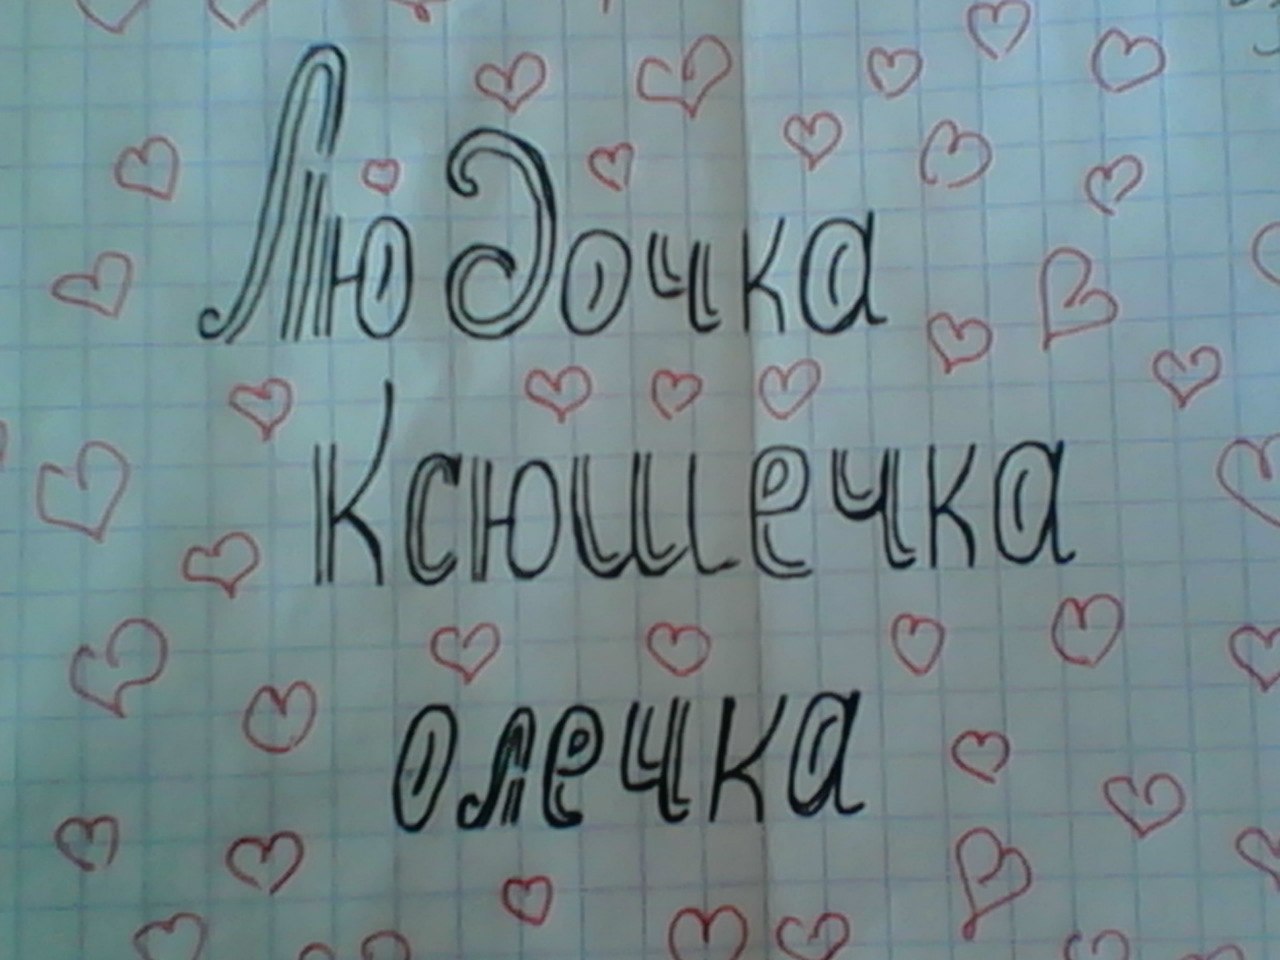 Людочка
Ксюшечка
олечка